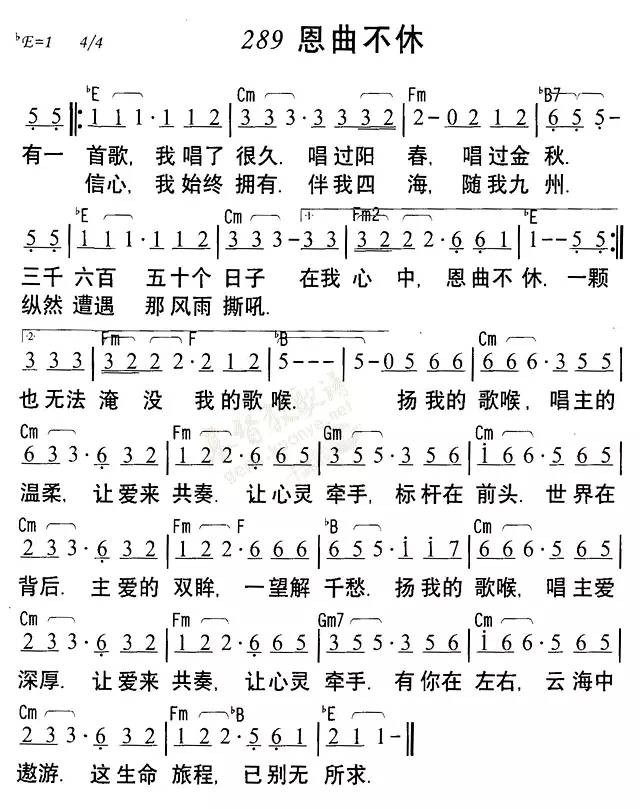 ♭E=1 4/4 289 恩曲不休
♭E Cm Fm ♭B7
5 5 ‖: 1 1 1 · 1 1 2 | 3 3 3 · 3 3 3 2 | 2 - 0 2 1 2 | 6 5 5 -
有一 首歌, 我唱了很久. 唱过阳 春, 唱过金秋.
信心, 我始终拥有. 伴我四 海, 随我九州.
♭E Cm 1. Fm2 ♭E
5 5 | 1 1 1 · 1 1 2 | 3 3 3 - 3 3 | 3 2 2 2 · 6 6 1 | 1 - - 5 5 :‖
三千六百 五十个日子 在我心中, 恩曲不休. 一颗
纵然遭遇 那风雨撕吼.
2. Fm F ♭B Cm
3 3 3 | 3 2 2 2 · 2 1 2 | 5 - - - | 5 - 0 5 6 6 | 6 6 6 · 3 5 5 |
也无法淹没 我的歌喉. 扬我的歌喉, 唱主的
Cm Fm Gm Cm
6 3 3 · 6 3 2 | 1 2 2 · 6 6 6 | 3 5 5 · 3 5 6 | i 6 6 · 3 5 5 |
温柔, 让爱来共奏. 让心灵牵手, 标杆在前头. 世界在
Cm Fm F ♭B Cm
2 3 3 · 6 3 2 | 1 2 2 · 6 6 6 | 6 5 5 · i i 7 | 6 6 6 · 3 5 5 |
背后. 主爱的双眸, 一望解千愁. 扬我的歌喉, 唱主爱
Cm Fm Gm7 Cm
2 3 3 · 6 3 2 | 1 2 2 · 6 6 6 | 3 5 5 · 3 5 6 | i 6 6 · 3 5 5 |
深厚. 让爱来共奏, 让心灵牵手. 有你在左右, 云海中
Cm Fm ♭B ♭E
2 3 3 · 6 3 2 | 1 2 2 · 5 6 1 | 2 1 1 - ‖
遨游. 这生命旅程, 已别无所求.